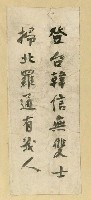 登台韓信無雙士
掃北羅通有幾人